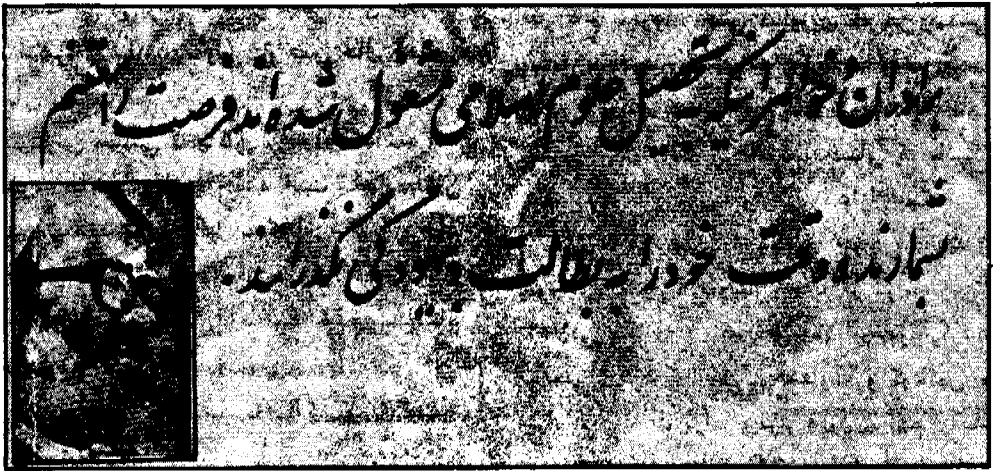 برادران و خواهرانیکه بتحصیل علوم اسلامی مشغول شده‌اند فرصت را مغتنم
بشمارند و وقت خود را به بطالت و بیهودگی نگذرانند.